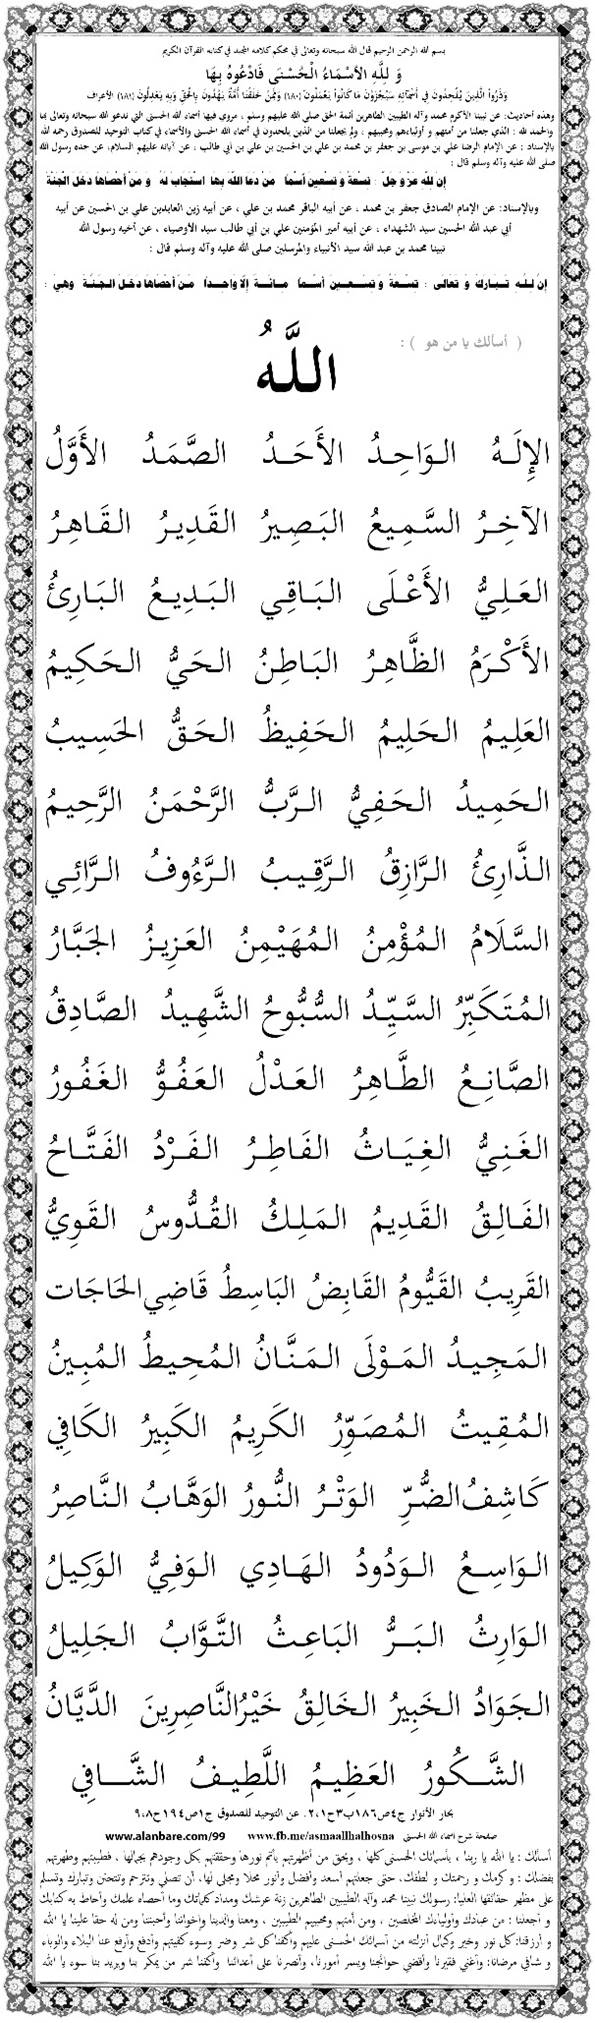 بسم الله الرحمن الرحيم قال الله سبحانه وتعالى في محكم كلامه المجيد في كتابه القرآن الكريم
وَ لِلَّهِ الأَسْمَاءُ الْحُسْنَى فَادْعُوهُ بِهَا
وَذَرُوا الَّذِينَ يُلْحِدُونَ فِي أَسْمَائِهِ سَيُجْزَوْنَ مَا كَانُوا يَعْمَلُونَ (١٨٠) وَمِمَّنْ خَلَقْنَا أُمَّةٌ يَهْدُونَ بِالْحَقِّ وَبِهِ يَعْدِلُونَ (١٨١) الأعراف
وهذه أحاديث: عن نبينا الأكرم محمد وآله الطيبين الطاهرين أئمة الحق صلى الله عليهم وسلم ، مروي فيها أسماء الله الحسنى التي ندعو الله سبحانه وتعالى بها
والحمد لله : الذي جعلنا من أمتهم و أوليائهم ومحبيهم ، ولم يجعلنا من الذين يلحدون في أسماء الله الحسنى والأسماء في كتاب التوحيد للصدوق رحمه الله
بالإسناد : عن الإمام الرضا علي بن موسى بن جعفر بن محمد بن علي بن الحسين بن علي بن أبي طالب ، عن آبائه عليهم السلام، عن جده رسول الله
صلى الله عليه وآله وسلم قال :
إن لله عز و جل : تسعة و تسعين أسما من دعا الله بها استجاب له و من أحصاها دخل الجنة
وبالإسناد: عن الإمام الصادق جعفر بن محمد ، عن أبيه الباقر محمد بن علي ، عن أبيه زين العابدين علي بن الحسين عن أبيه
أبي عبد الله الحسين سيد الشهداء ، عن أبيه أمير المؤمنين علي بن أبي طالب سيد الأوصياء ، عن أخيه رسول الله
نبينا محمد بن عبد الله سيد الأنبياء والمرسلين صلى الله عليه وآله وسلم قال :
إن لله تبارك و تعالى : تسعة و تسعين أسما مائة إلا واحدا من أحصاها دخل الجنة وهي :
( أسألك يا من هو ) :
اللَّهُ
الإِلَهُ الوَاحِدُ الأَحَدُ الصَّمَدُ الأَوَّلُ
الآخِرُ السَّمِيعُ البَصِيرُ القَدِيرُ القَاهِرُ
العَلِيُّ الأَعْلَى البَاقِي البَدِيعُ البَارِئُ
الأَكْرَمُ الظَّاهِرُ البَاطِنُ الحَيُّ الحَكِيمُ
العَلِيمُ الحَلِيمُ الحَفِيظُ الحَقُّ الحَسِيبُ
الحَمِيدُ الحَفِيُّ الرَّبُّ الرَّحْمَنُ الرَّحِيمُ
الذَّارِئُ الرَّازِقُ الرَّقِيبُ الرَّءُوفُ الرَّائِي
السَّلَامُ المُؤْمِنُ المُهَيْمِنُ العَزِيزُ الجَبَّارُ
المُتَكَبِّرُ السَّيِّدُ السُّبُّوحُ الشَّهِيدُ الصَّادِقُ
الصَّانِعُ الطَّاهِرُ العَدْلُ العَفُوُّ الغَفُورُ
الغَنِيُّ الغِيَاثُ الفَاطِرُ الفَرْدُ الفَتَّاحُ
الفَالِقُ القَدِيمُ المَلِكُ القُدُّوسُ القَوِيُّ
القَرِيبُ القَيُّومُ القَابِضُ البَاسِطُ قَاضِي الحَاجَات
المَجِيدُ المَوْلَى المَنَّانُ المُحِيطُ المُبِينُ
المُقِيتُ المُصَوِّرُ الكَرِيمُ الكَبِيرُ الكَافِي
كَاشِفُ الضُّرِّ الوَتْرُ النُّورُ الوَهَّابُ النَّاصِرُ
الوَاسِعُ الوَدُودُ الهَادِي الوَفِيُّ الوَكِيلُ
الوَارِثُ البَرُّ البَاعِثُ التَّوَّابُ الجَلِيلُ
الجَوَادُ الخَبِيرُ الخَالِقُ خَيْرُ النَّاصِرِينَ الدَّيَّانُ
الشَّكُورُ العَظِيمُ اللَّطِيفُ الشَّافِي
بحار الأنوار ج٤ص١٨٦ب٣ح١،٢. عن التوحيد للصدوق ج١ص١٩٤ح٨،٩
صفحة شرح أسماء الله الحسنى www.fb.me/asmaallhalhosna www.alanbare.com/99
أسألك : يا الله يا ربنا ، بأسمائك الحسنى كلها ، وبحق من أظهرتهم بأتم نورها وحققتهم بكل وجودهم بجمالها ، فطيبتهم وطهرتهم
بفضلك : و كرمك و رحمتك و لطفك، حتى جعلتهم أسعد وأفضل وأنور محلا ومجلى لها، أن تصلي وتترحم وتتحنن وتبارك وتسلم
على مظهر حقائقها العليا: رسولك نبينا محمد وآله الطيبين الطاهرين زنة عرشك ومداد كلماتك وما أحصاه علمك وأحاط به كتابك
و أجعلنا : من عبادك وأوليائك المخلصين ، ومن أمتهم ومحبيهم الطيبين ، ومعنا والدينا وإخواننا وأحبتنا ومن له حقا علينا يا الله
و أرزقنا: كل نور وخير وكمال أنزلته من أسمائك الحسنى عليهم وأكفنا كل شر وضر وسوء كفيتهم وأدفع وأرفع عنا البلاء والوباء
و شافي مرضانا: وأغني فقيرنا وأقضي حوائجنا ويسر أمورنا، وأنصرنا على أعدائنا وأكفنا شر من يمكر بنا ويريد بنا سوء يا الله